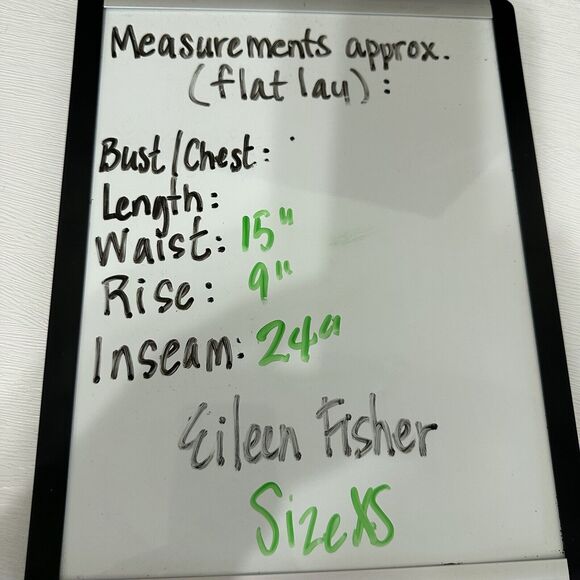 Measurements approx.
(flat lay):
Bust/Chest:
Length:
Waist: 15"
Rise: 9"
Inseam: 24"
Eileen Fisher
Size XS